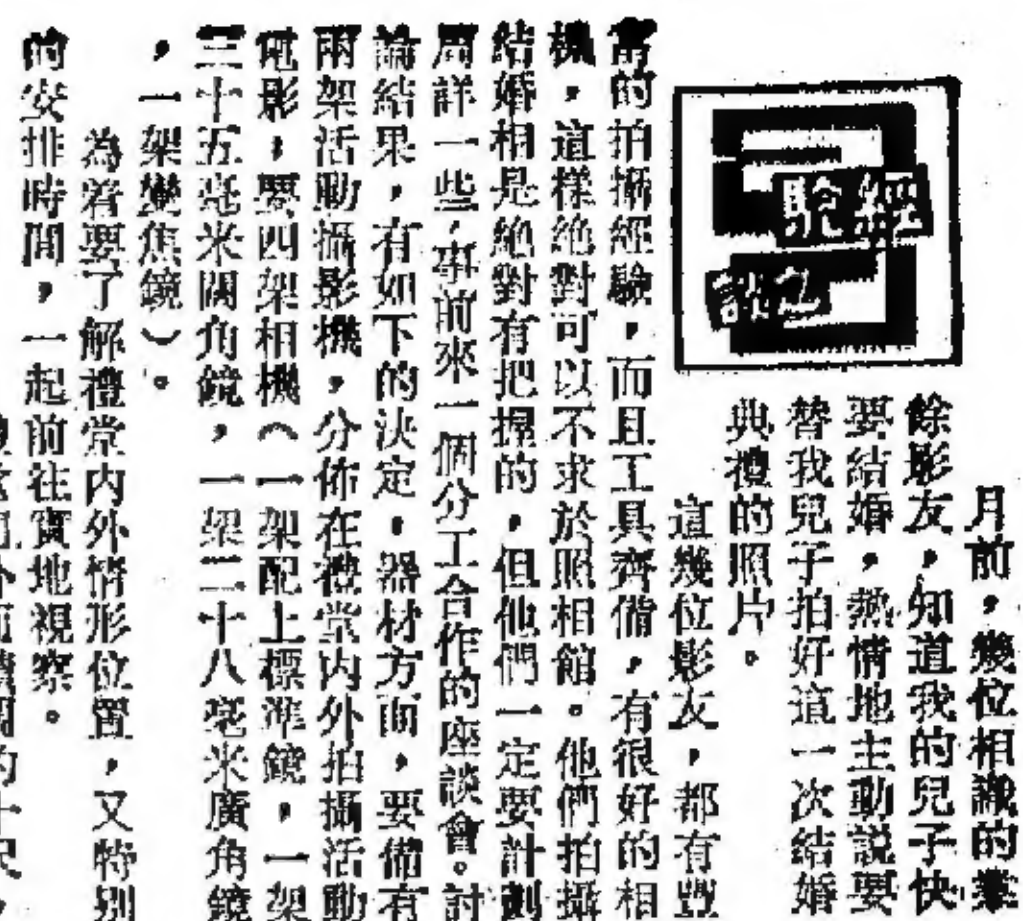 經驗
談
月前，幾位相識的業
餘影友，知道我的兒子快
要結婚，熱情地主動説要
替我兒子拍好這一次結婚
典禮的照片。
這幾位影友，都有豐
富的拍攝經驗，而且工具齊備，有很好的相
機，這樣絶對可以不求於照相館。他們拍攝
結婚相是絶對有把握的，但他們一定要計劃
周詳一些，事前來一個分工合作的座談會。討
論結果，有如下的決定，器材方面，要備有
兩架活動攝影機，分佈在禮堂内外拍攝活動
電影，要四架相機（一架配上標準鏡，一架
三十五亳米闊角鏡，一架二十八亳米廣角鏡
，一架變焦鏡）。
為着要了解禮堂内外情形位置，又特別
的安排時間，一起前往實地視察。